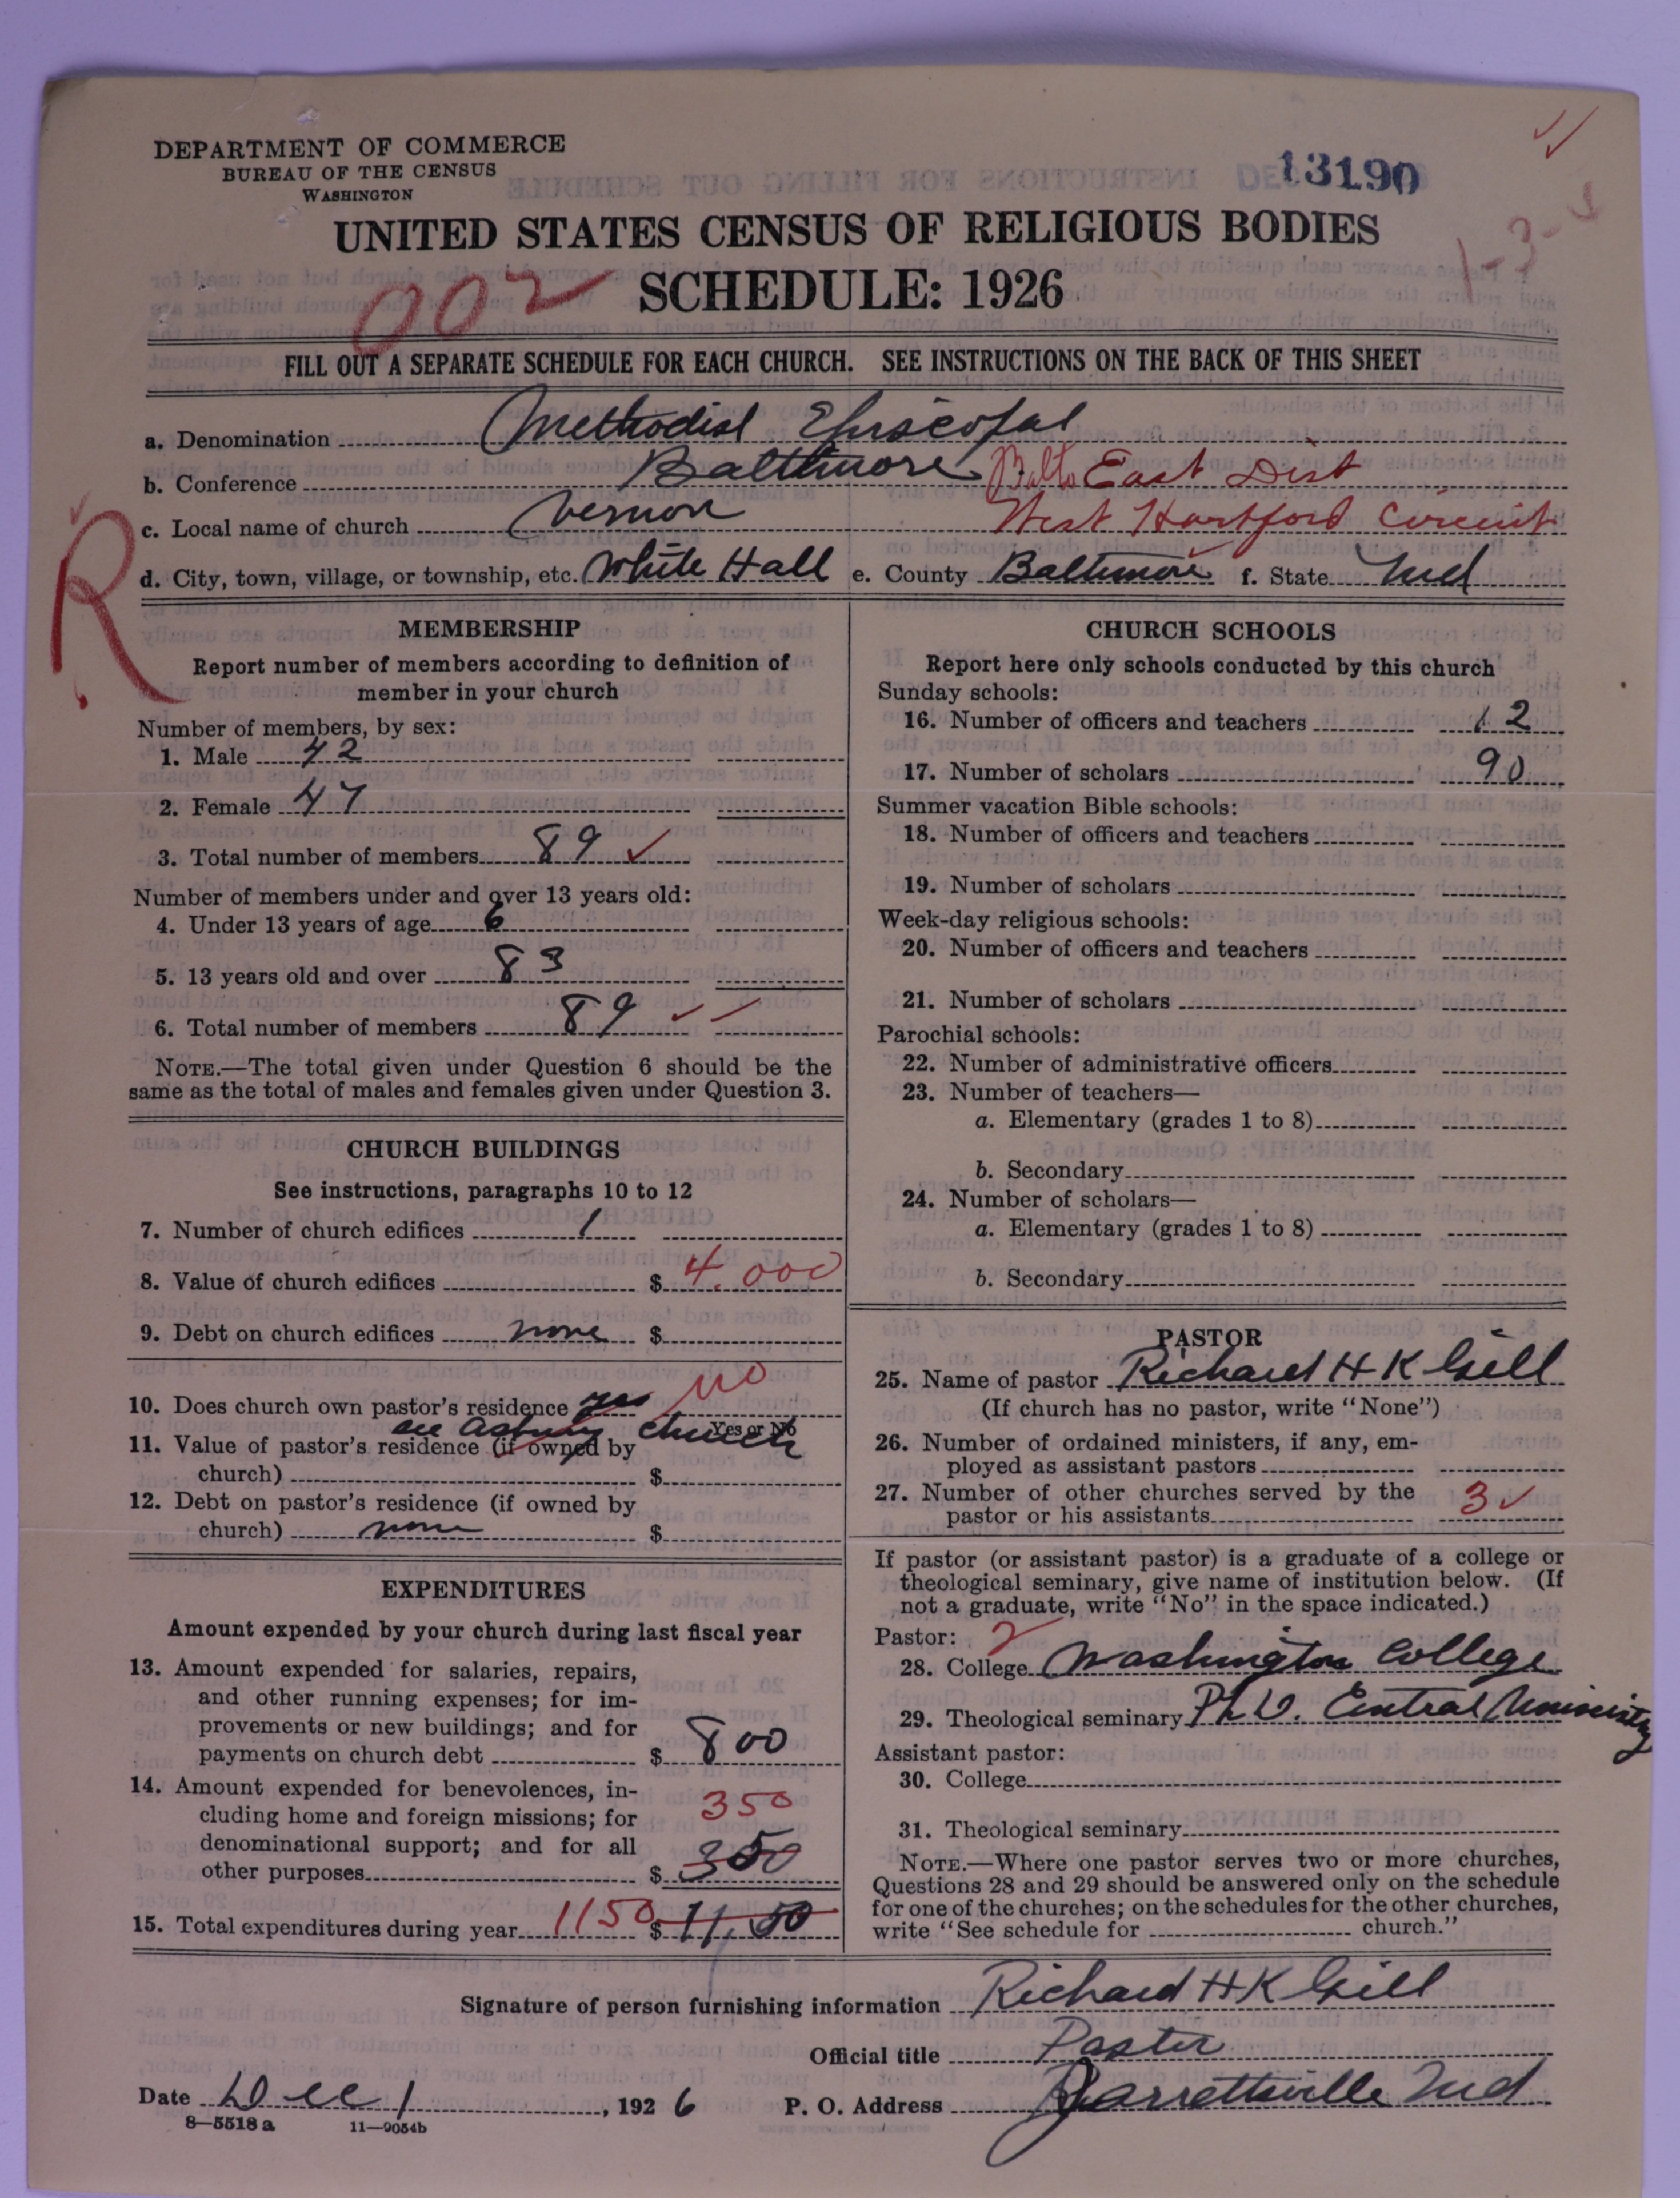 DEPARTMENT OF COMMERCE
BUREAU OF THE CENSUS
WASHINGTON
13190
UNITED STATES CENSUS OF RELIGIOUS BODIES
1-3-
002
SCHEDULE: 1926
FILL OUT A SEPARATE SCHEDULE FOR EACH CHURCH. SEE INSTRUCTIONS ON THE BACK OF THIS SHEET
a. Denomination Methodist Episcopal
b. Conference Balttimore Balto East Dist
c. Local name of church Vernon West Hartford Circuit
R
d. City, town, village, or township, etc. White Hall e. County Baltimore f. State Md
MEMBERSHIP
Report number of members according to definition of
member in your church
Number of members, by sex:
1. Male 42
2. Female 47
3. Total number of members 89
Number of members under and over 13 years old:
4. Under 13 years of age 6
5. 13 years old and over 83
6. Total number of members 89
NOTE.—The total given under Question 6 should be the
same as the total of males and females given under Question 3.
CHURCH BUILDINGS
See instructions, paragraphs 10 to 12
7. Number of church edifices 1
8. Value of church edifices $ 4,000
9. Debt on church edifices none $
10. Does church own pastor's residence yes no
Yes or No
see Asbury Church
11. Value of pastor's residence (if owned by
church) $
12. Debt on pastor's residence (if owned by
church) none $
EXPENDITURES
Amount expended by your church during last fiscal year
13. Amount expended for salaries, repairs,
and other running expenses; for im-
provements or new buildings; and for
payments on church debt $ 800
14. Amount expended for benevolences, in-
cluding home and foreign missions; for 350
denominational support; and for all
other purposes $ 350
15. Total expenditures during year 1150 $ 11,50
CHURCH SCHOOLS
Report here only schools conducted by this church
Sunday schools:
16. Number of officers and teachers 12
17. Number of scholars 90
Summer vacation Bible schools:
18. Number of officers and teachers
19. Number of scholars
Week-day religious schools:
20. Number of officers and teachers
21. Number of scholars
Parochial schools:
22. Number of administrative officers
23. Number of teachers—
a. Elementary (grades 1 to 8)
b. Secondary
24. Number of scholars—
a. Elementary (grades 1 to 8)
b. Secondary
PASTOR
25. Name of pastor Richard H K Gill
(If church has no pastor, write "None")
26. Number of ordained ministers, if any, em-
ployed as assistant pastors
27. Number of other churches served by the
pastor or his assistants 3
If pastor (or assistant pastor) is a graduate of a college or
theological seminary, give name of institution below. (If
not a graduate, write "No" in the space indicated.)
Pastor: 2
28. College Washington College
29. Theological seminary Ph D. Central University
Assistant pastor:
30. College
31. Theological seminary
NOTE.—Where one pastor serves two or more churches,
Questions 28 and 29 should be answered only on the schedule
for one of the churches; on the schedules for the other churches,
write "See schedule for church."
Signature of person furnishing information Richard H K Gill
Official title Pastor
Date Dec 1, 1926 P. O. Address Jarrettsville Md
8—5518 a 11—9054b